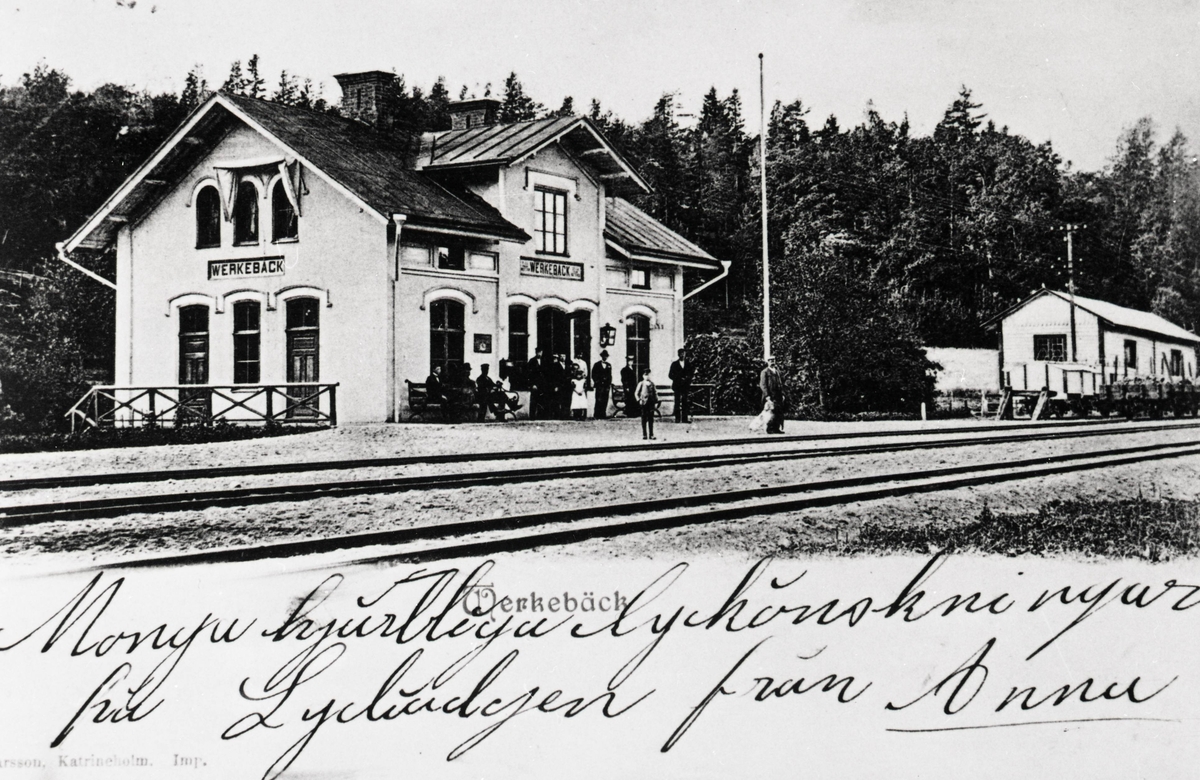 WERKEBÄCK
WERKEBÄCK
Werkebäck
Många hjärtliga lyckönskningar
på från Anna
arsson, Katrineholm. Imp.